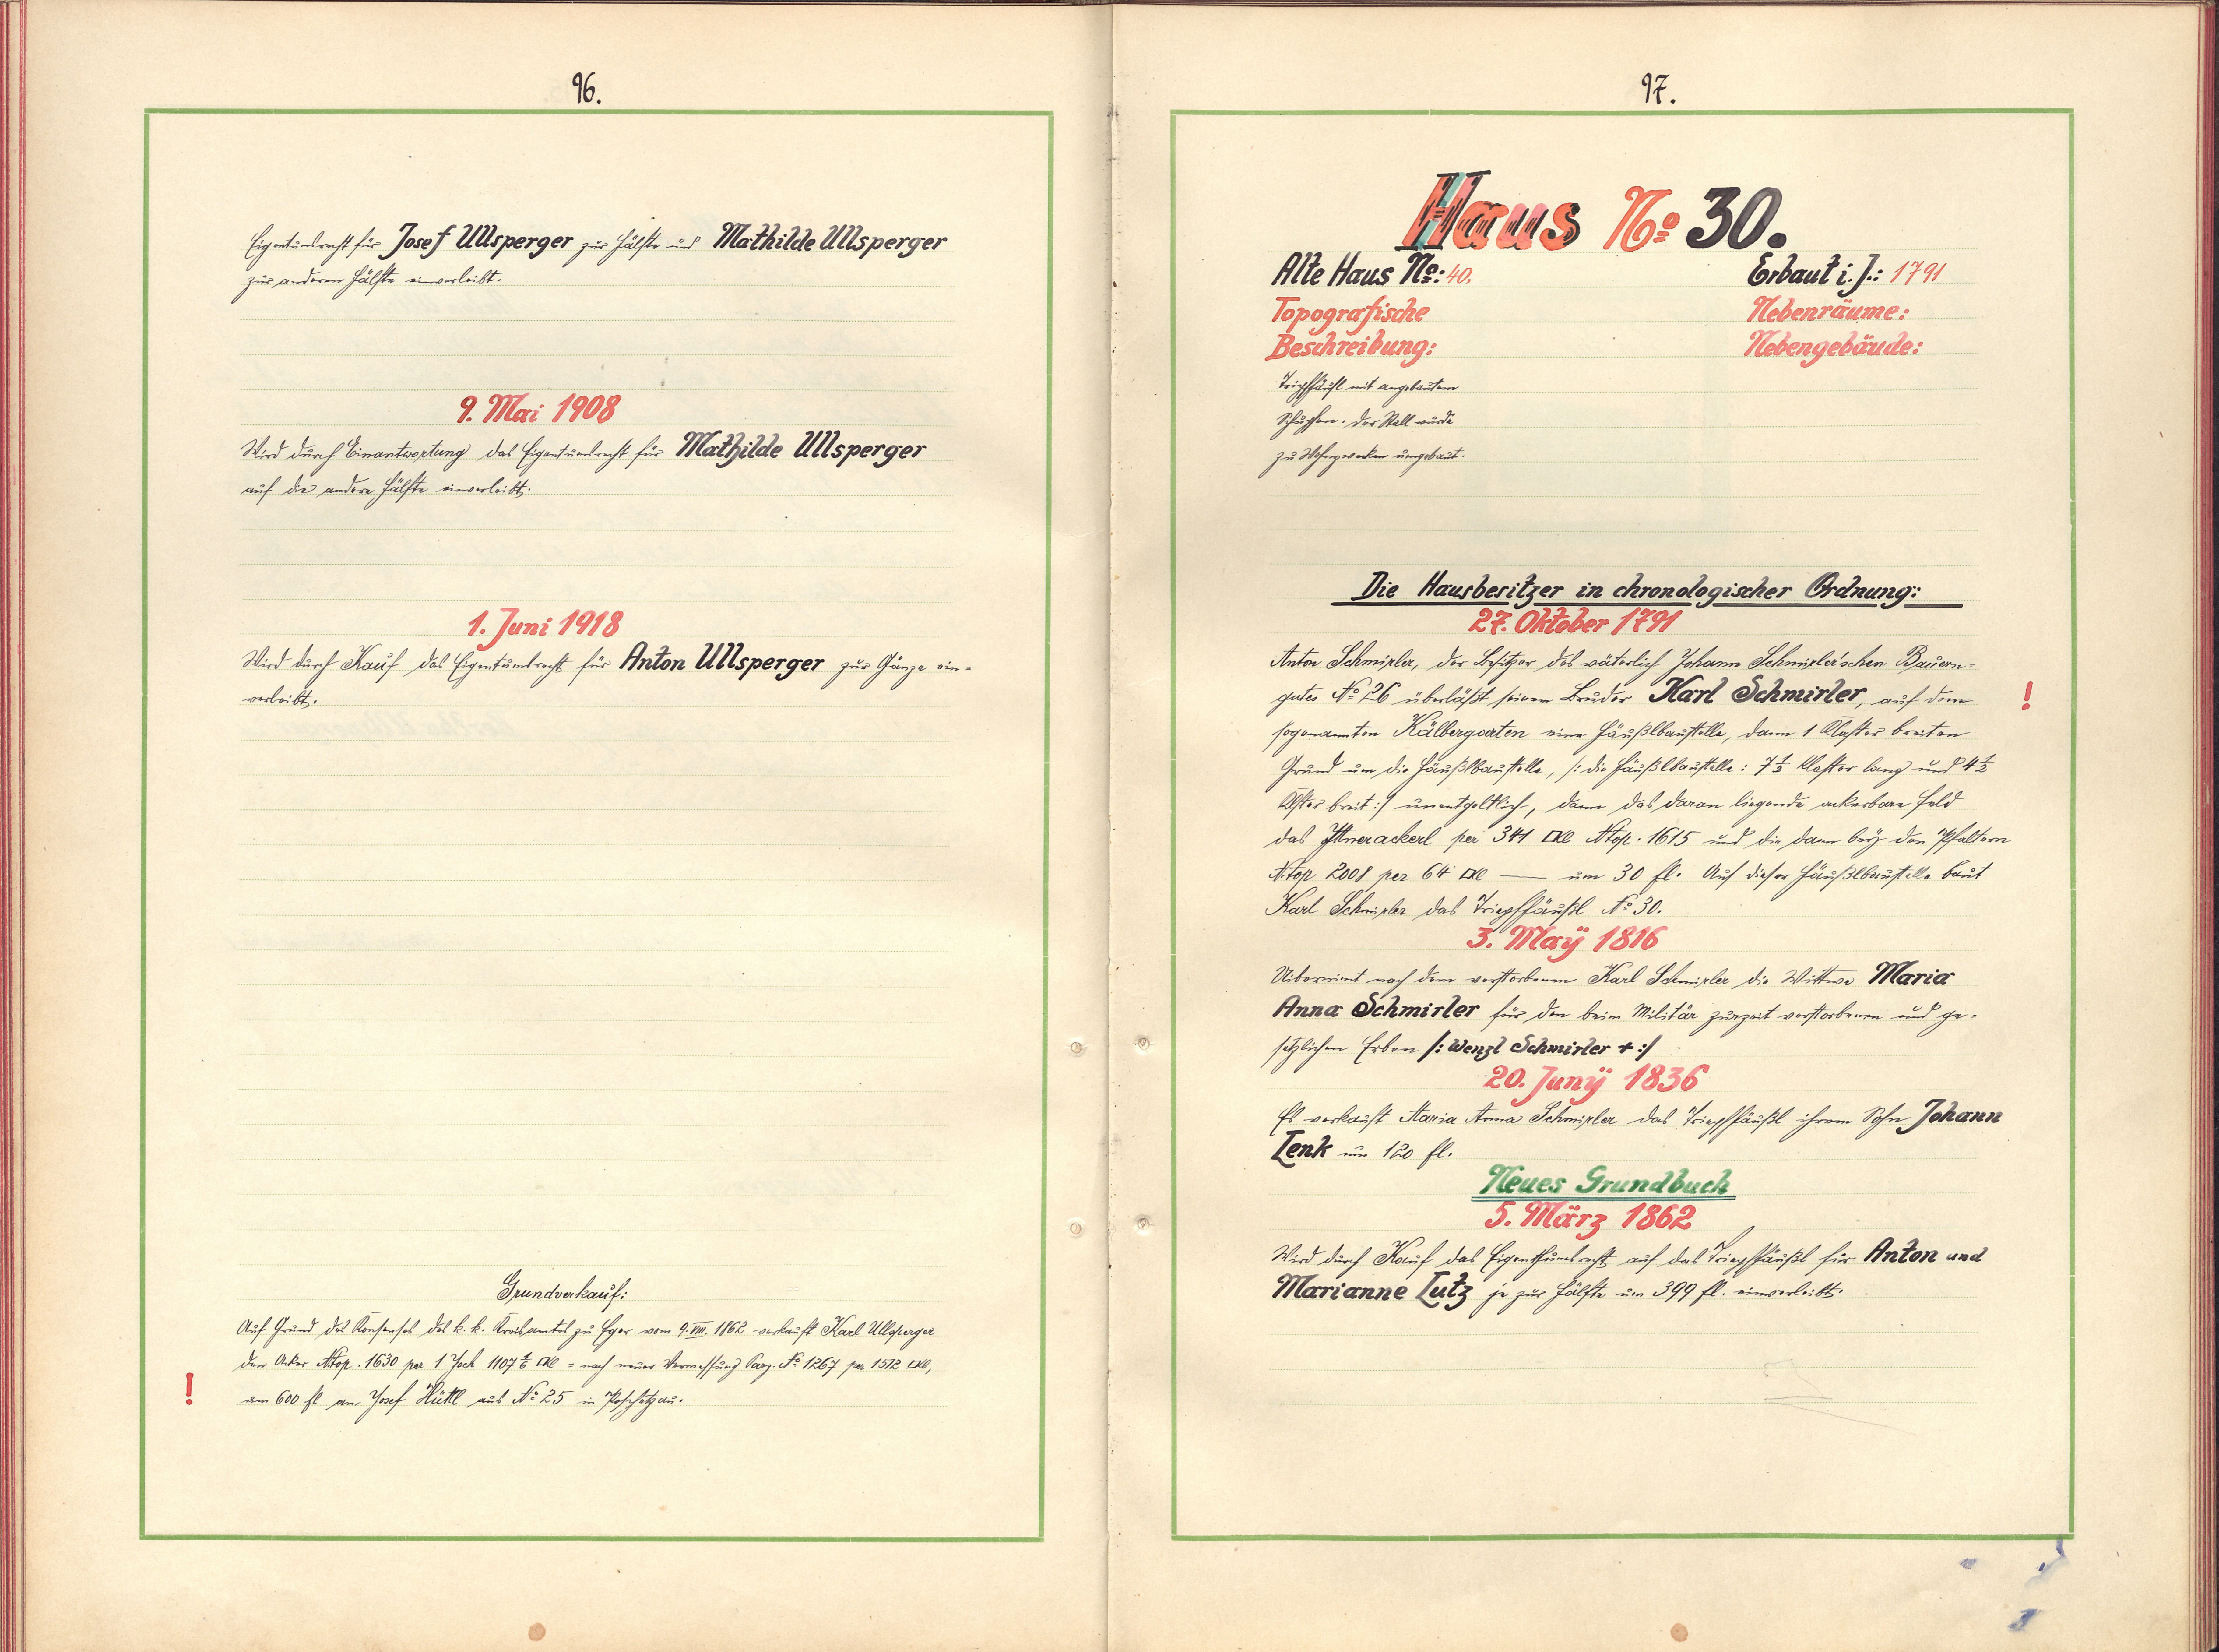 96.
Eigentumsrecht für Josef Ullsperger zur Hälfte und Mathilde Ullsperger
zur anderen Hälfte einverleibt.
9. Mai 1908
Wird durch Einantwortung das Eigentumsrecht für Mathilde Ullsperger
auf die andere Hälfte einverleibt.
1. Juni 1918
Wird durch Kauf das Eigentumsrecht für Anton Ullsperger zur Gänze ein-
verleibt.
Grundverkauf:
Auf Grund des Konsenses des k. k. Kreisamtes zu Eger vom 9. VIII. 1862 verkauft Karl Ullsperger
den Acker Ntop. 1630 per 1 Joch 1107 1/6 □Kl = nach neuer Vermessung Parz. No 1267 per 1572 □Kl,
! um 600 fl an Josef Hüttl aus No 25 in Poschetzau.
97.
Haus No 30.
Alte Haus No: 40.
Erbaut i. J.: 1791
Topografische
Nebenräume:
Beschreibung:
Nebengebäude:
Tripfhäusl mit angebautem
Schupfen. Der Stall wurde
zu Wohnzwecken umgebaut.
Die Hausbesitzer in chronologischer Ordnung:
27. Oktober 1791
Anton Schmirler, der Besitzer des väterlich Johann Schmirler'schen Bauern-
gutes No 26 überläßt seinem Bruder Karl Schmirler, auf dem !
sogenannten Kälbergarten eine Häußlbaustelle, dann 1 Klafter breiten
Grund um die Häußlbaustelle, /: die Häußlbaustelle: 7 1/2 Klafter lang und 4 1/2
Klafter breit :/ unentgeltlich, dann das daran liegende ackerbare Feld
das Ittnerackerl per 341 □Kl Ntop. 1615 und die dann bey den
Ntop 2008 per 64 □Kl — um 30 fl. Auf dieser Häußlbaustelle baut
Karl Schmirler das Triepfhäußl No 30.
3. Maÿ 1816
Uibernimt nach dem verstorbenen Karl Schmirler die Wittwe Maria
Anna Schmirler für den beim Militär zurzeit verstorbenen und ge-
setzlichen Erben /: Wenzl Schmirler + :/
20. Junÿ 1836
Es verkauft Maria Anna Schmirler das Triepfhäußl ihrem Sohn Johann
Lenk um 120 fl.
Neues Grundbuch
5. März 1862
Wird durch Kauf das Eigenthumsrecht auf das Triepfhäußl für Anton und
Marianne Lutz je zur Hälfte um 399 fl. einverleibt.